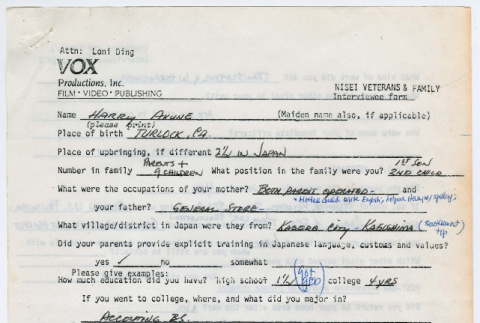 Attn: Loni Ding
VOX
Productions, Inc.
FILM · VIDEO · PUBLISHING
NISEI VETERANS & FAMILY
Interviewee form
Name HARRY AKUNE (Maiden name also, if applicable)
(please print)
Place of birth TURLOCK, CA.
Place of upbringing, if different 2½ IN JAPAN
Number in family PARENTS + 9 CHILDREN What position in the family were you? 1ST SON 2ND CHILD
What were the occupations of your mother? BOTH PARENT OPERATED - and
your father? GENERAL STORE -
What village/district in Japan were they from? KASEDA CITY - KAGOSHIMA (Southernmost tip)
Did your parents provide explicit training in Japanese language, customs and values?
yes ✓ no somewhat
Please give examples:
How much education did you have? high school 1½ (Got GED) college 4 YRS
If you went to college, where, and what did you major in?
ACCOUNTING B.S.